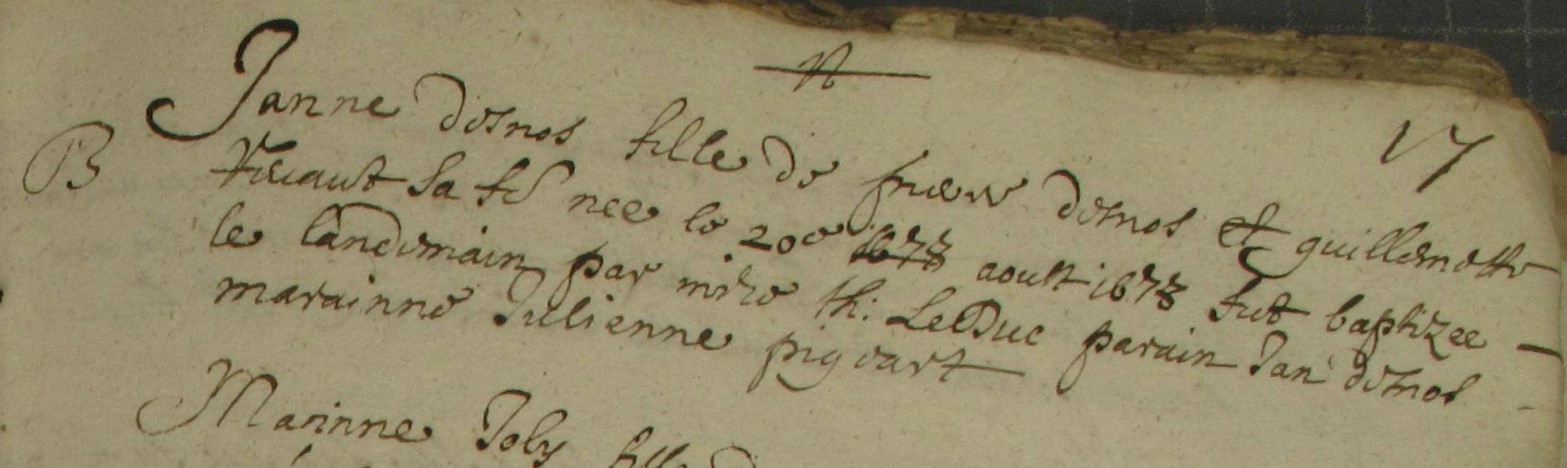 n
17
Janne desnos fille de pierre desnos et guillemette
B
sa fe nee le 20e 1678 aoust 1678 fut baptizee
le landemain par mire th: LeDuc parain Jan desnos
marainne Julienne pigeart
Marinne Joly fille